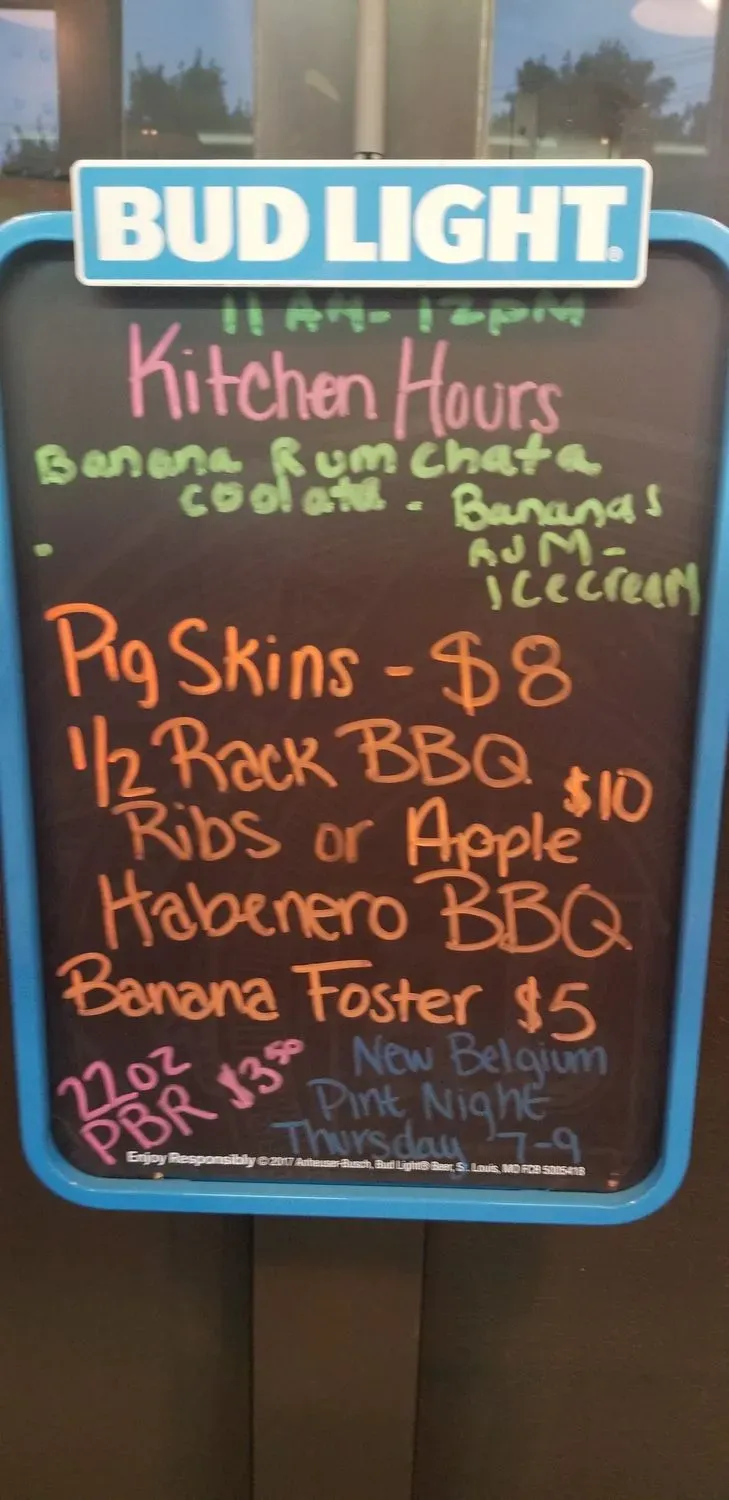 BUD LIGHT®
11 AM - 12pm
Kitchen Hours
Banana Rum chata
coolata - Bananas
RUM -
ICecreaM
Pig Skins - $8
1/2 Rack BBQ
$10
Ribs or Apple
Habenero BBQ
Banana Foster $5
22oz
PBR $3.50
New Belgium
Pint Night
Thursday 7-9
Enjoy Responsibly © 2017 Anheuser-Busch, Bud Light® Beer, St. Louis, MO FCB 5005418